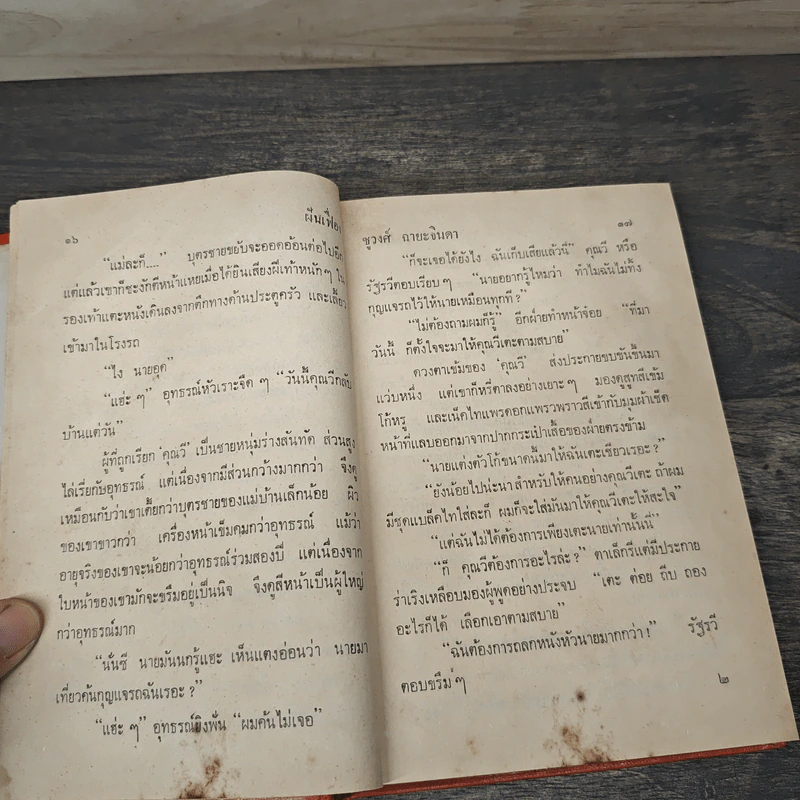 ๑๖
ฝันเฟื่อง
“แม่ละก็....” บุตรชายขยับจะออดอ้อนต่อไปอีก
แต่แล้วเขาก็ชะงักตีหน้าแหยเมื่อได้ยินเสียงฝีเท้าหนักๆ ใน
รองเท้าแตะหนังเดินลงจากตึกทางด้านประตูครัว และเลี้ยว
เข้ามาในโรงรถ
“ไง นายอุด”
“แฮ่ะ ๆ” อุทธรณ์หัวเราะจืด ๆ “วันนี้คุณวีกลับ
บ้านแต่วัน”
ผู้ที่ถูกเรียก ‘คุณวี’ เป็นชายหนุ่มร่างสันทัด ส่วนสูง
ไล่เรี่ยกับอุทธรณ์ แต่เนื่องจากมีส่วนกว้างมากกว่า จึงดู
เหมือนกับว่าเขาเตี้ยกว่าบุตรชายของแม่บ้านเล็กน้อย ผิว
ของเขาขาวกว่า เครื่องหน้าเข็มคมกว่าอุทธรณ์ แม้ว่า
อายุจริงของเขาจะน้อยกว่าอุทธรณ์ร่วมสองปี แต่เนื่องจาก
ใบหน้าของเขามักจะขรึมอยู่เป็นนิจ จึงดูสีหน้าเป็นผู้ใหญ่
กว่าอุทธรณ์มาก
“นั่นซี นายมันนกรู้แฮะ เห็นแตงอ่อนว่า นายมา
เที่ยวค้นกุญแจรถฉันเรอะ ?”
“แฮ่ะ ๆ” อุทธรณ์ยิงฟัน “ผมค้นไม่เจอ”
ชูวงศ์ ฉายะจินดา
๑๗
“ก็จะเจอได้ยังไง ฉันเก็บเสียแล้วนี่” คุณวี หรือ
รัฐรวีตอบเรียบๆ “นายอยากรู้ไหมว่า ทำไมฉันไม่ทิ้ง
กุญแจรถไว้ให้นายเหมือนทุกที ?”
“ไม่ต้องถามผมก็รู้” อีกฝ่ายทำหน้าจ๋อย “ที่มา
วันนี้ ก็ตั้งใจจะมาให้คุณวีเตะตามสบาย”
ดวงตาเข้มของ ‘คุณวี’ ส่งประกายขบขันขึ้นมา
แว่บหนึ่ง แต่เขาก็หรี่ตาลงอย่างเยาะๆ มองดูสูทสีเข้ม
โก้หรู และเน็คไทแพรดอกแพรวพราวสีเข้ากับมุมผ้าเช็ด
หน้าที่แลบออกมาจากปากกระเป๋าเสื้อของฝ่ายตรงข้าม
“นายแต่งตัวโก้ขนาดนี้มาให้ฉันเตะเชียวเรอะ ?”
“ยังน้อยไปน่ะนา สำหรับให้คนอย่างคุณวีเตะ ถ้าผม
มีชุดแบล็คไทใส่ละก็ ผมก็จะใส่มันมาให้คุณวีเตะให้สะใจ”
“แต่ฉันไม่ได้ต้องการเพียงเตะนายเท่านั้นนี่”
“ก็ คุณวีต้องการอะไรล่ะ ?” ตาเล็กรีแต่มีประกาย
ร่าเริงเหลือบมองผู้พูดอย่างประจบ “เตะ ต่อย ถีบ ถอง
อะไรก็ได้ เลือกเอาตามสบาย”
“ฉันต้องการถลกหนังหัวนายมากกว่า !” รัฐรวี
ตอบขรึม ๆ
๒